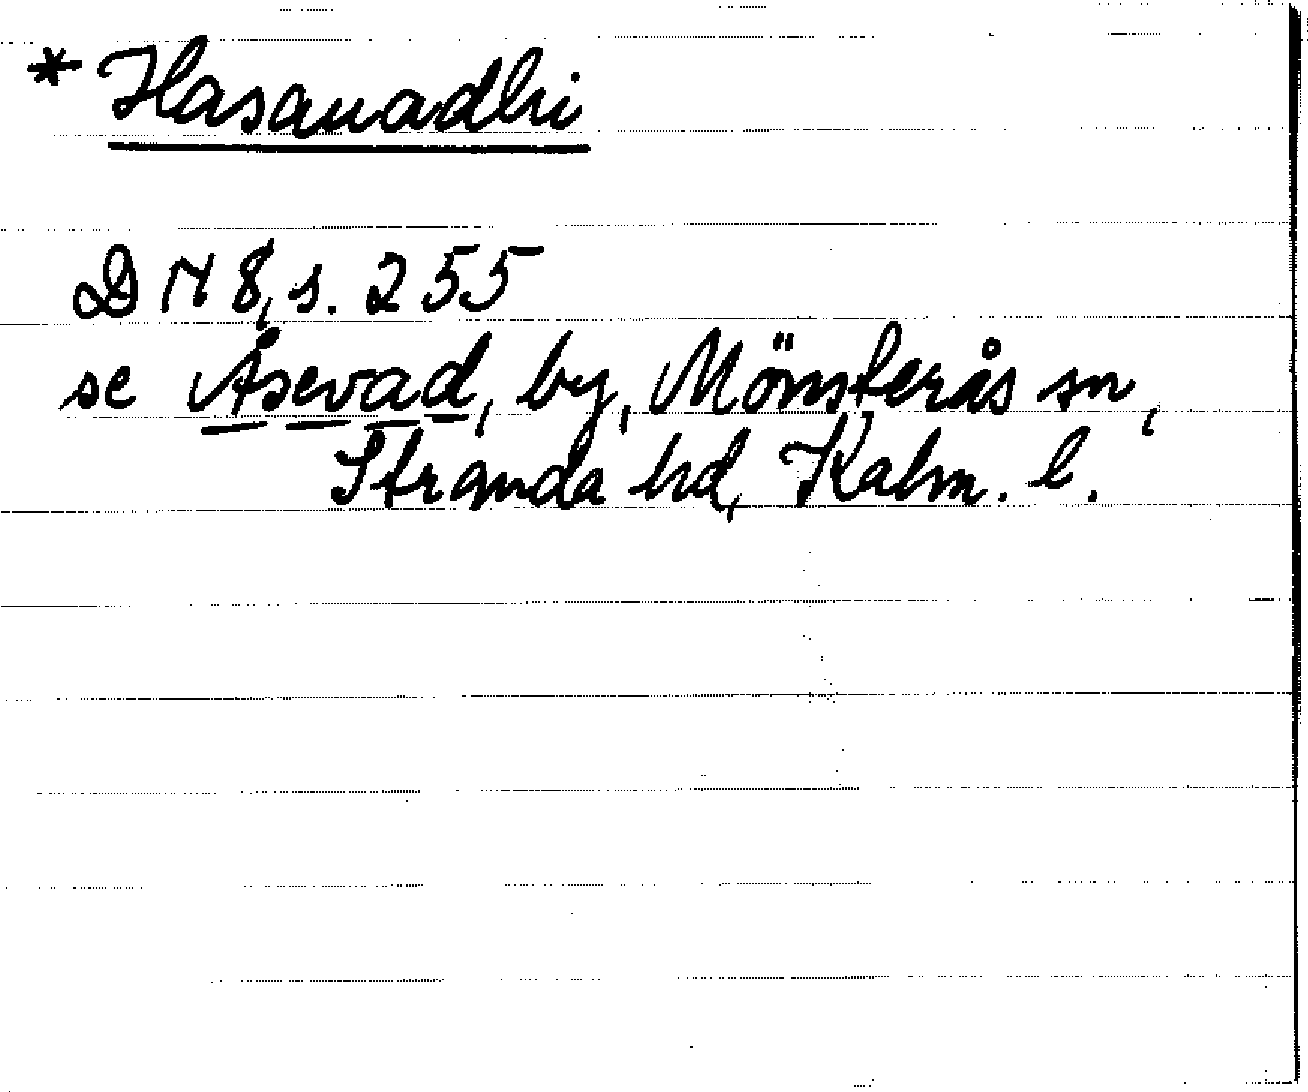 * Hasauadhi
D N 8, s. 255
se Åsevad, by, Mönsterås sn,
Stranda hd, Kalm. l.